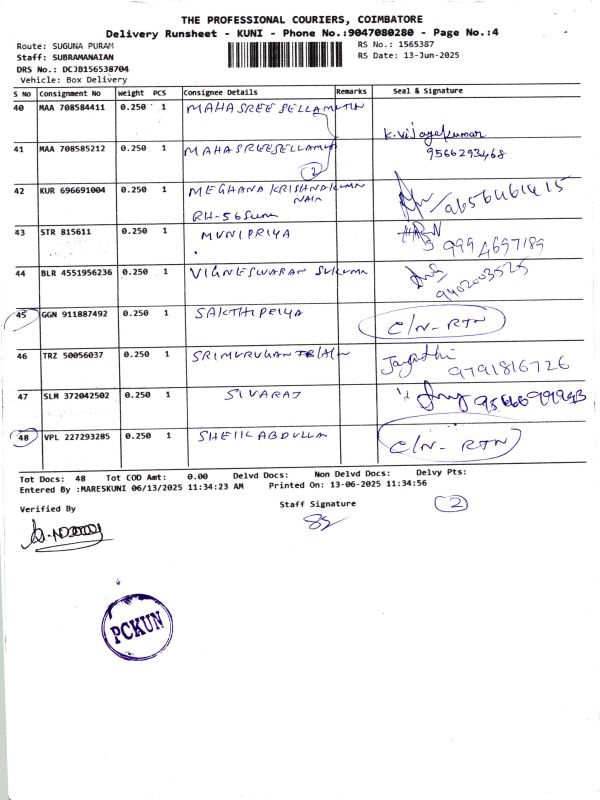 THE PROFESSIONAL COURIERS, COIMBATORE
Delivery Runsheet - KUNI - Phone No.:9047080280 - Page No.:4
Route: SUGUNA PURAM
RS No.: 1565387
Staff: SUBRAMANAIAN
RS Date: 13-Jun-2025
DRS No.: DCJB156538704
Vehicle: Box Delivery
S No Consignment No Weight PCS Consignee Details Remarks Seal & Signature
40 MAA 708584411 0.250 1 MAHASREESELLAMUTHU
K.Vijayakumar
41 MAA 708585212 0.250 1 MAHASREESELLAMU 9566293468
2
42 KUR 696691004 0.250 1 MEGHANA KRISHNAKUMAR
NAIR
RH-56
43 STR 815611 0.250 1 MUNIPRIYA 9994697189
44 BLR 4551956236 0.250 1 VIGNESWARAN SUKUMA 9402003525
45 GGN 911887492 0.250 1 SAKTHIPRIYA C/N-RTN
46 TRZ 50056037 0.250 1 SRIMURUGAN 9791816726
47 SLM 372042502 0.250 1 SIVARAJ
48 VPL 227293285 0.250 1 SHEIK ABDULLA C/N-RTN
Tot Docs: 48 Tot COD Amt: 0.00 Delvd Docs: Non Delvd Docs: Delvy Pts:
Entered By :MARESKUNI 06/13/2025 11:34:23 AM Printed On: 13-06-2025 11:34:56
Verified By
Staff Signature
2
PCKUN